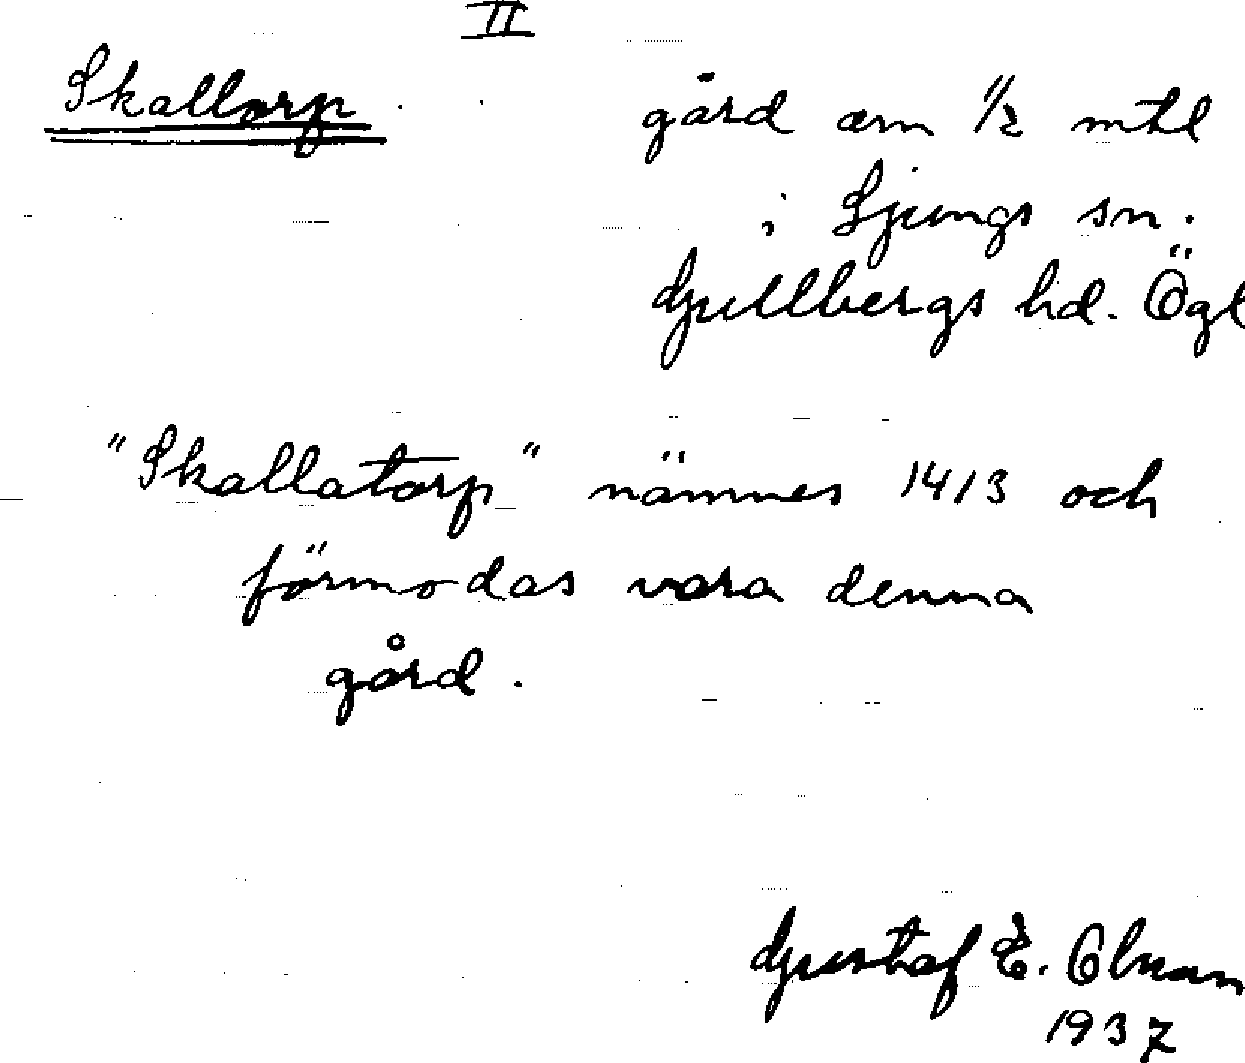 II
Skallorp. gård om 1/2 mtl
i Ljungs sn.
Gullbergs hd. Ögl
"Skallatorp" nämnes 1413 och
förmodas vara denna
gård.
Gustaf E. Olman
1937